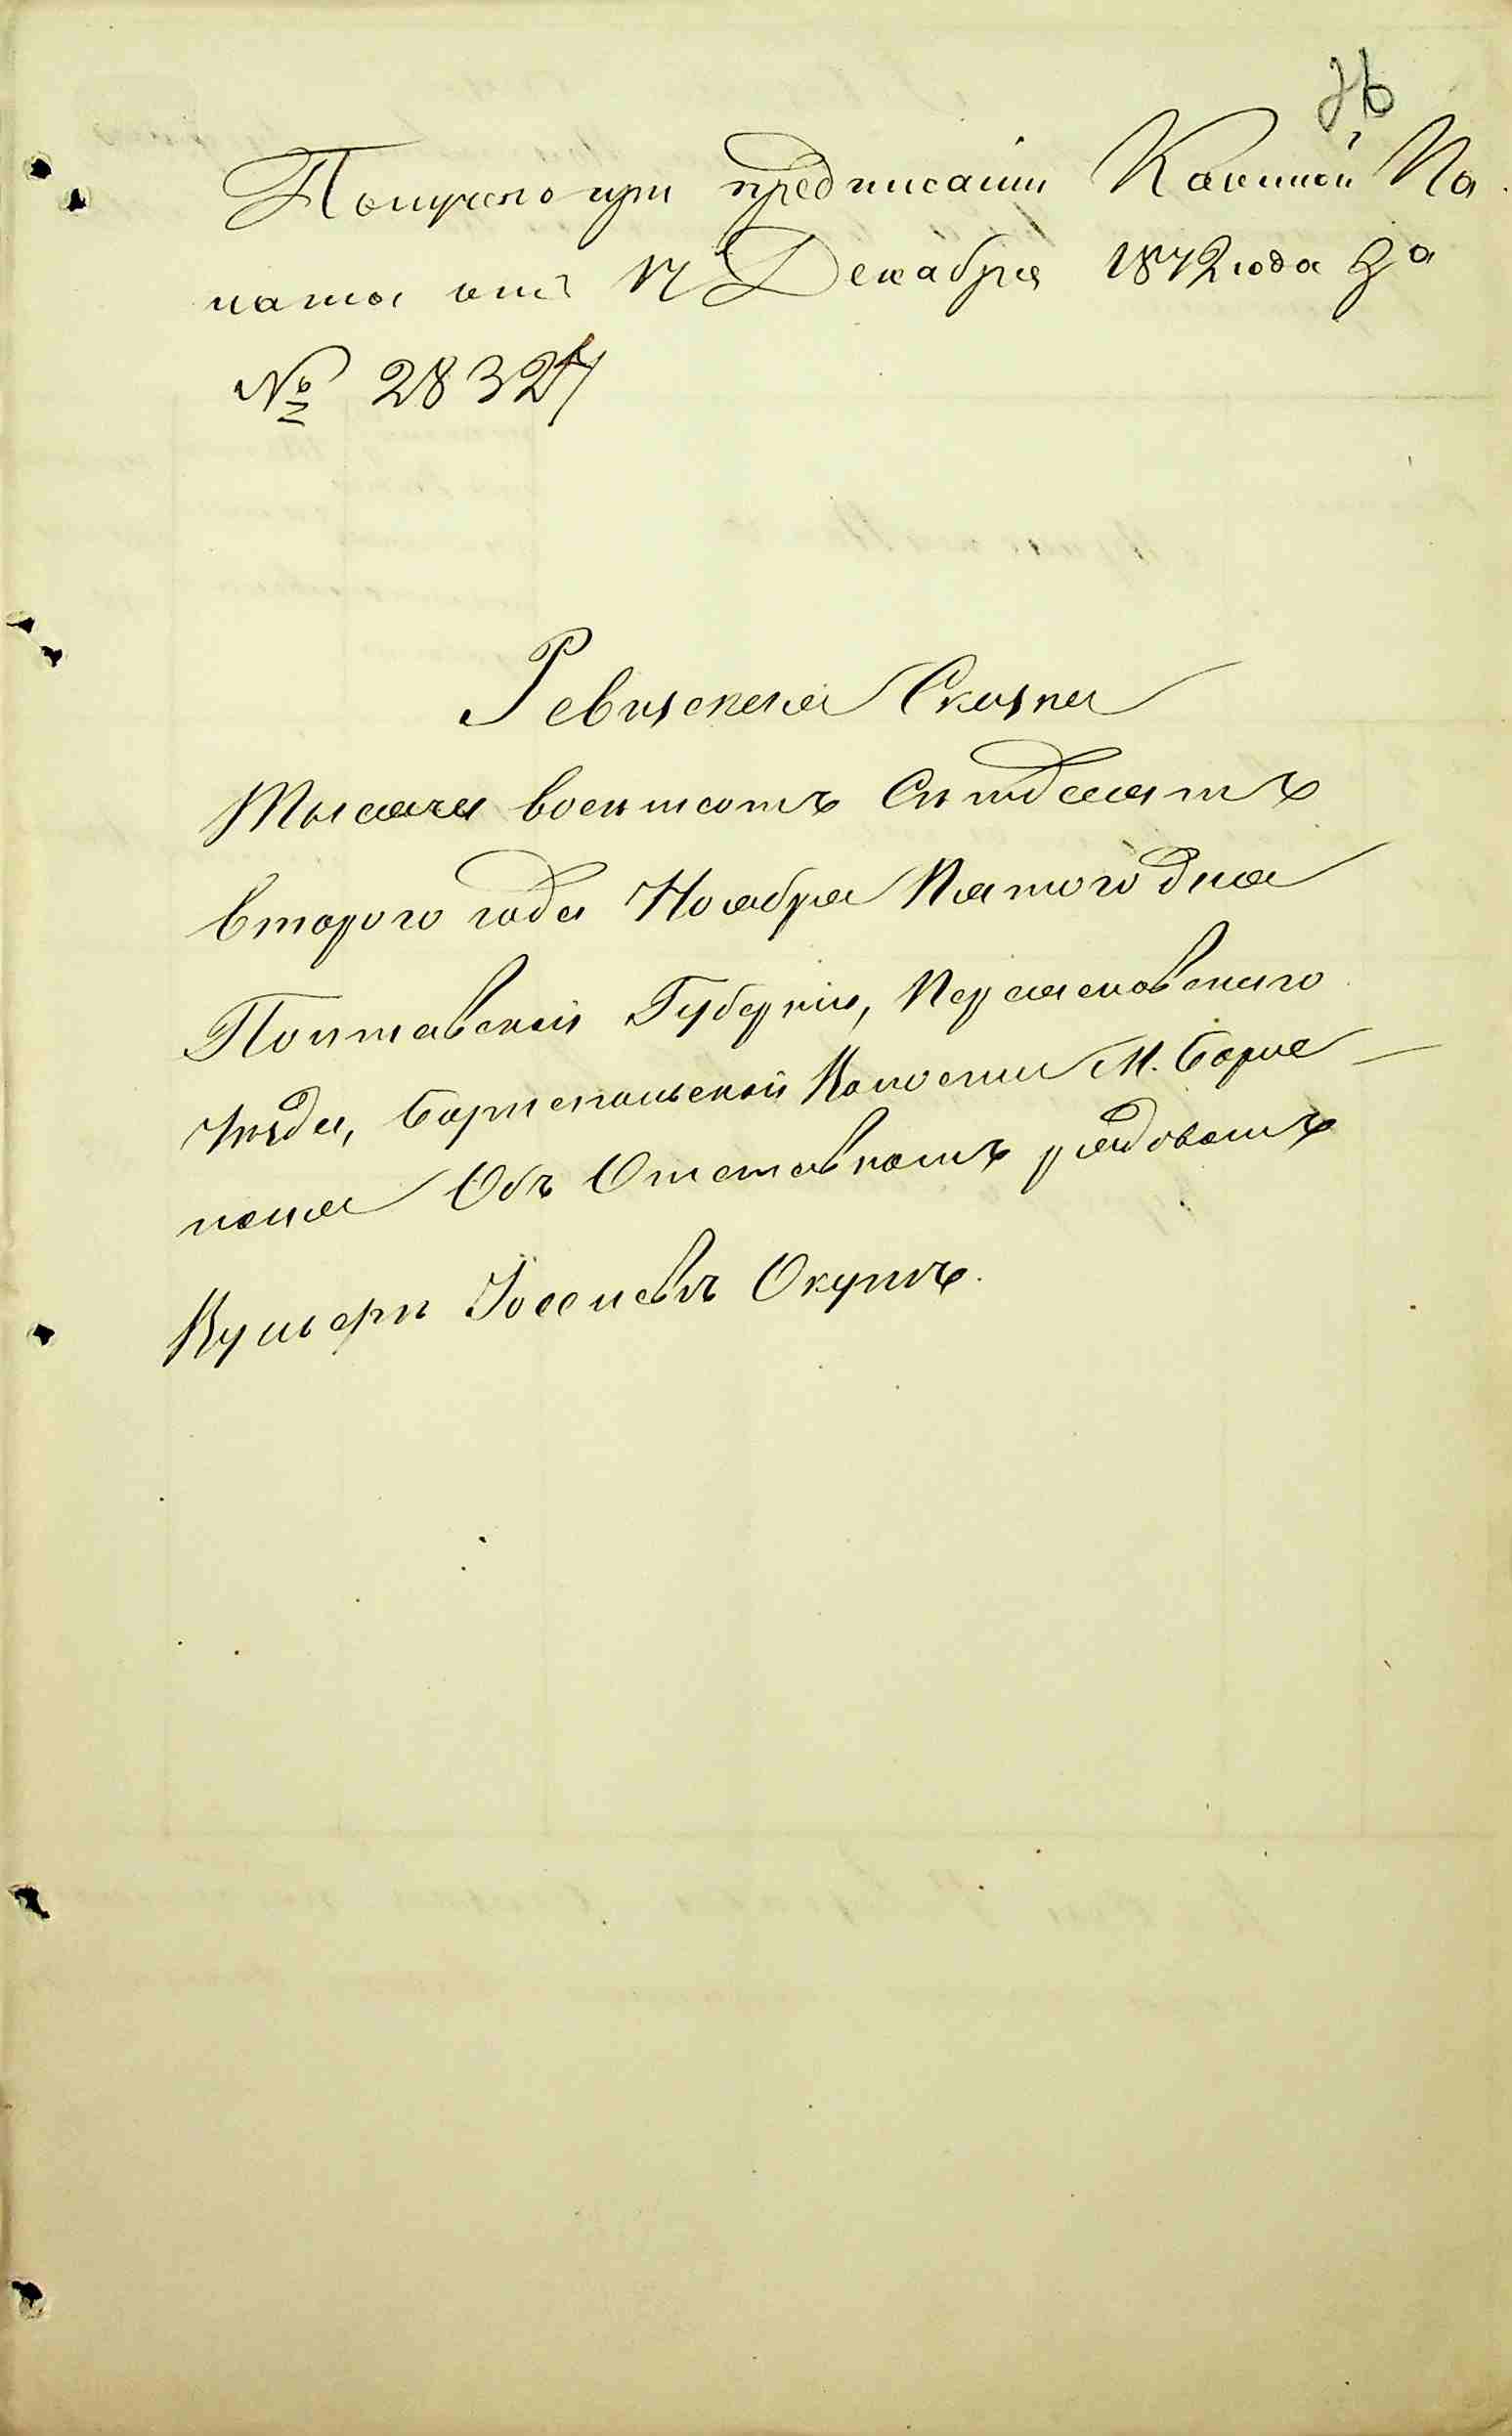 26
Получено при предписаніи Казенной Па-
латы отъ 17 Декабря 1872 года за
№ 28327
Ревизская Сказка
Тысяча восемьсотъ Семдесятъ
второго года Ноября Пятого дня
Полтавской Губерніи, Переяславскаго
Уѣзда, Бориспольской Волости М. Борис-
поля Объ Отставномъ рядовомъ
Іосеневъ Окунь.